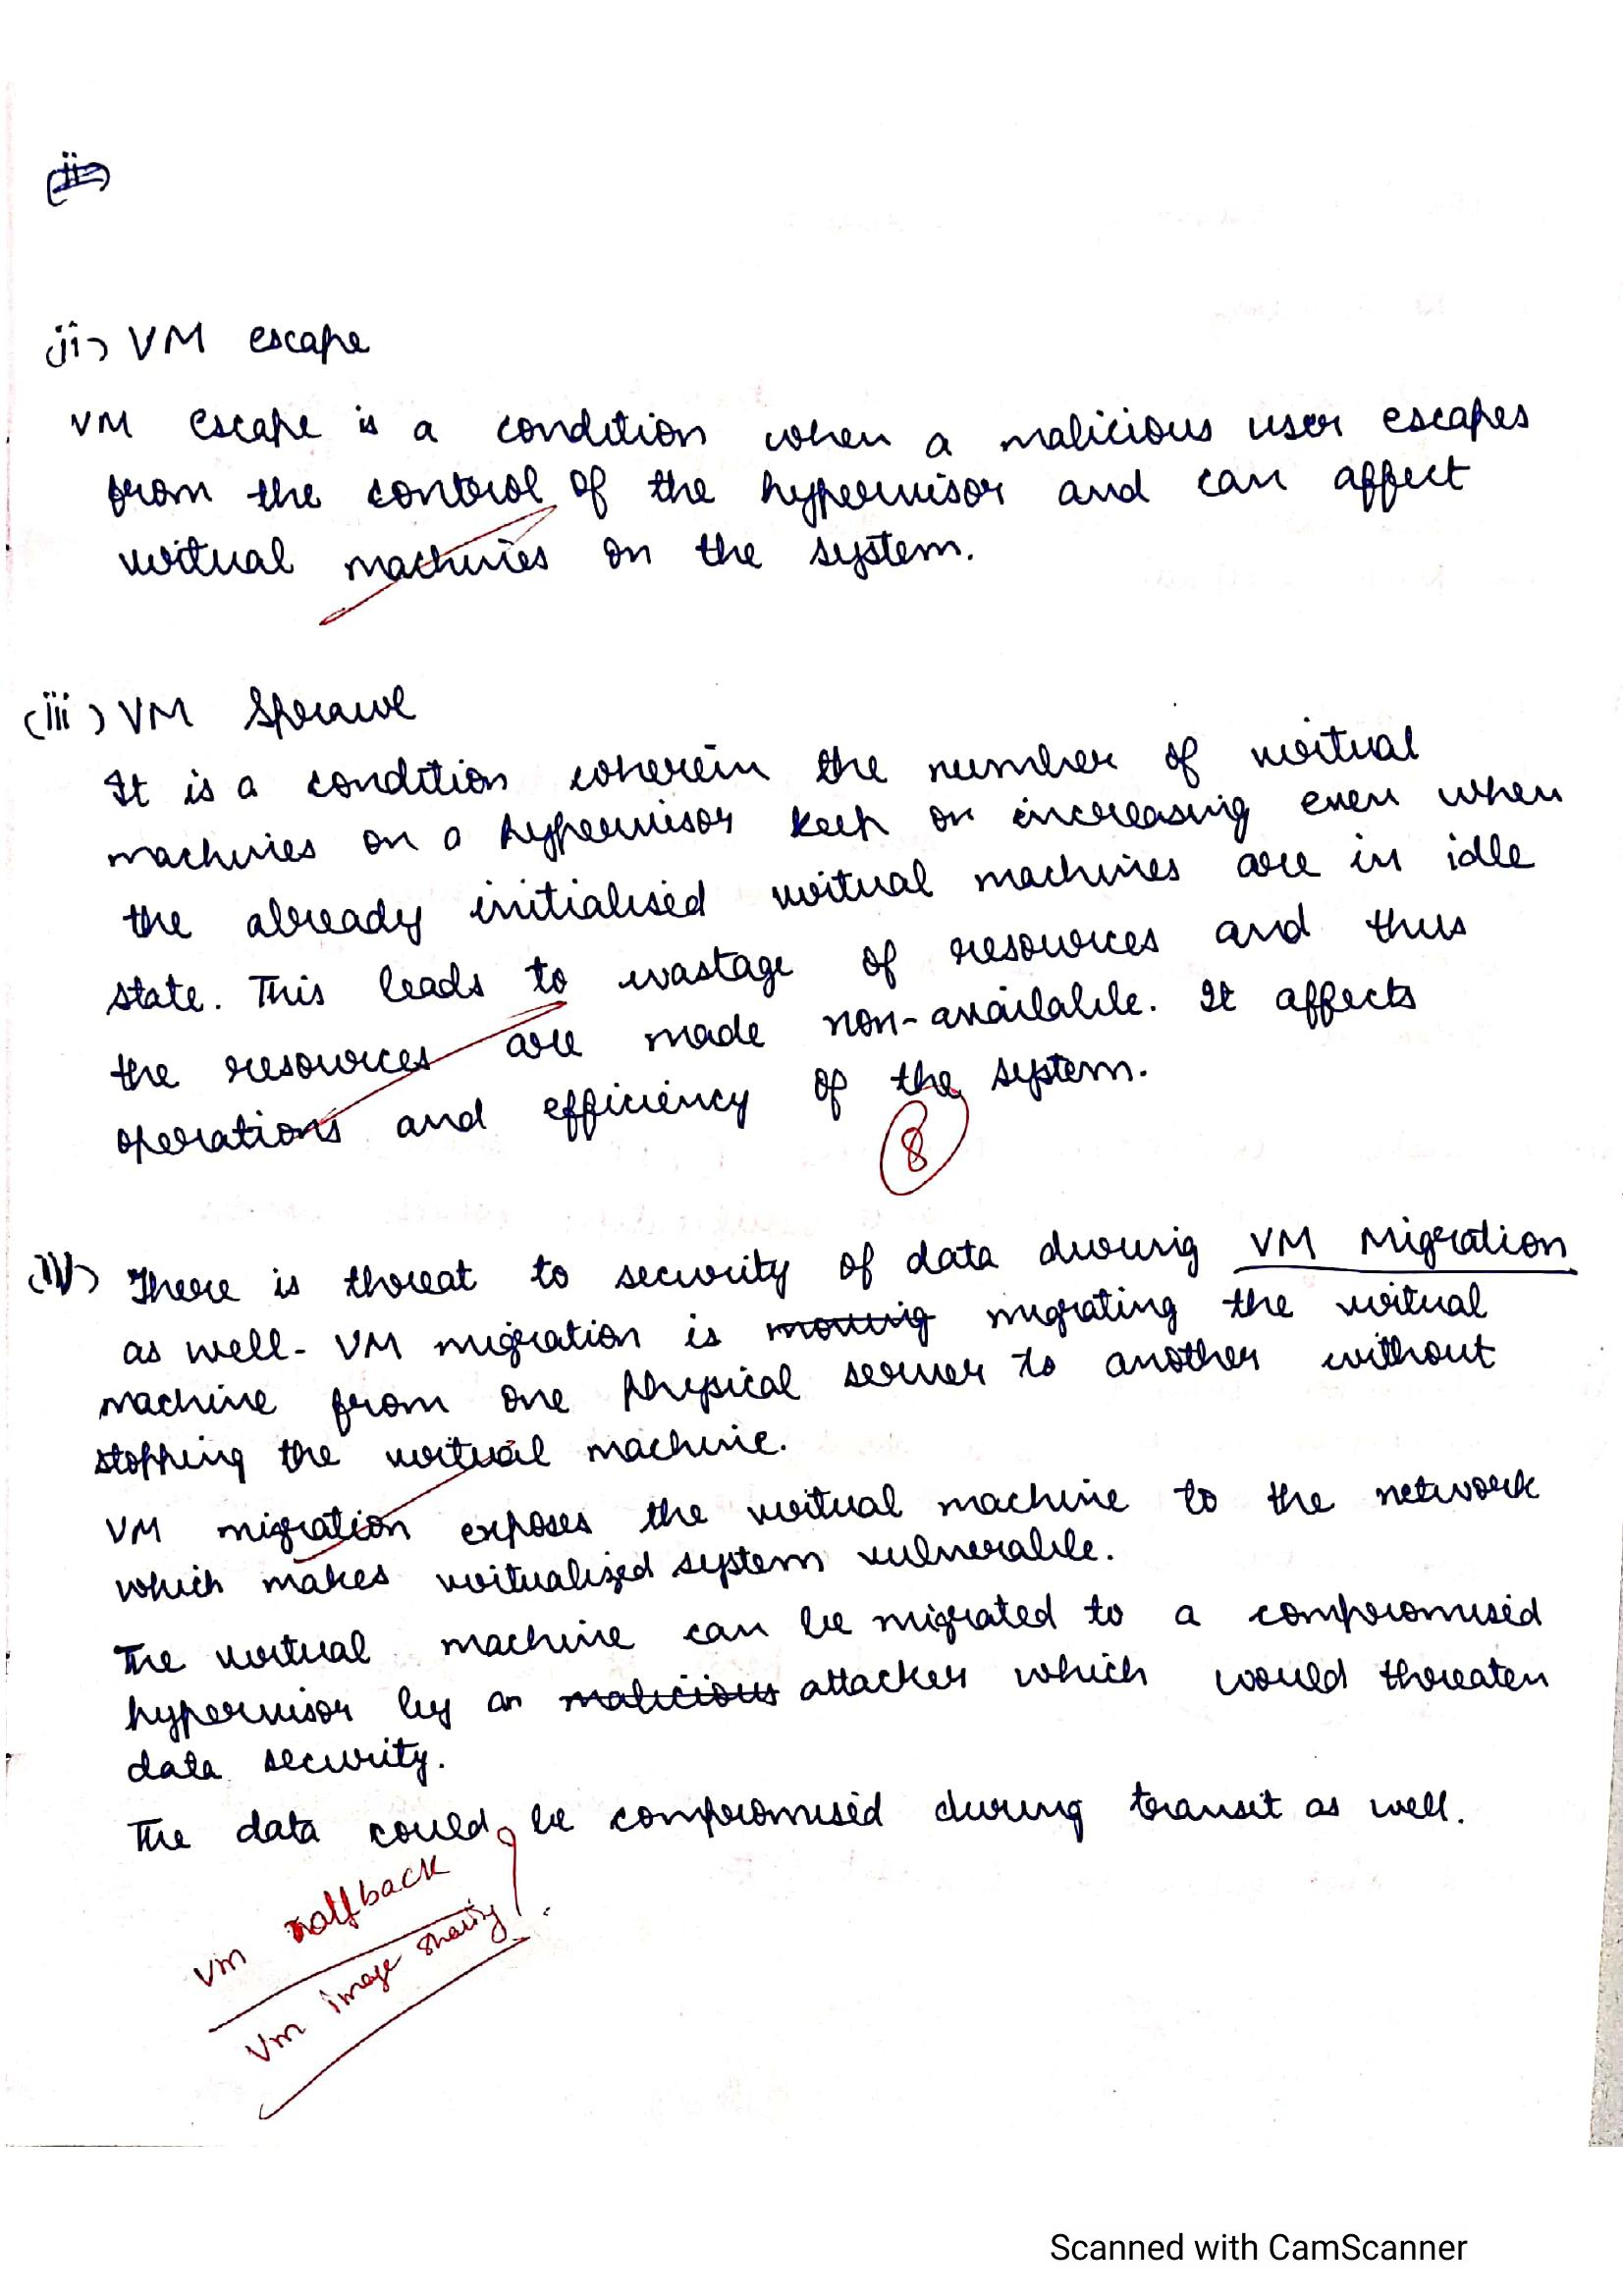 (ii)
(ii) VM escape
VM escape is a condition when a malicious user escapes
from the control of the hypervisor and can affect
virtual machines on the system.
(iii) VM Sprawl
It is a condition wherein the number of virtual
machines on a hypervisor keep on increasing even when
the already initialised virtual machines are in idle
state. This leads to wastage of resources and thus
the resources are made non-available. It affects
operations and efficiency of the system.
8
(iv) There is threat to security of data during VM Migration
as well. VM migration is moving migrating the virtual
machine from one physical server to another without
stopping the virtual machine.
VM migration exposes the virtual machine to the network
which makes virtualized system vulnerable.
The virtual machine can be migrated to a compromised
hypervisor by an malicious attacker which would threaten
data security.
The data could be compromised during transit as well.
Vm rollback
Vm image sharing
Scanned with CamScanner